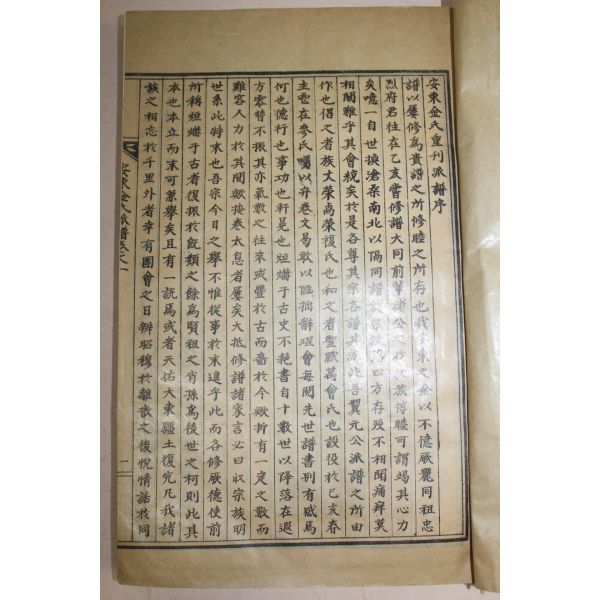 安東金氏重刊派譜序
譜以屢修爲貴譜之所修睦之所存也我安東之金以不億厥麗同祖忠
烈府君往在乙亥嘗修譜大同前輩諸公之於收族惇睦可謂竭其心力
矣噫一自世換滄桑南北以隔同譜宗族 四方存歿不相聞痛冞莫
相關難乎其會統矣於是各尊其宗各譜其派此吾翼元公派譜之所由
作也倡之者族丈榮高榮復氏也和之者聖 萬會氏也設役於己亥春
主 在參氏囑以弁卷文曷敢以 拙辭 會每閱先世譜書別有 焉
何也德行也事功也軒冕也烜爀于古史不絶書自十數世以降落在遐
方零替不振其亦氣數之往來或豐於古而嗇於今歟抑有一定之數而
難容人力於其間歟掩卷太息者屢矣大抵修譜諸家言必曰收宗族明
世系此特末也吾宗今日之擧不惟從事於末追乎此而各修厥德使前
所稱烜爀于古者復振於旣頹之餘爲賢祖之肖孫爲後世之柯則此其
本也本立而末可兼擧矣且有一說焉或者天佑大東疆土復完凡我諸
族之相忘於千里外者幸有團會之日辨昭穆於離散之後悅情話於同
安東金氏派譜卷之一
一